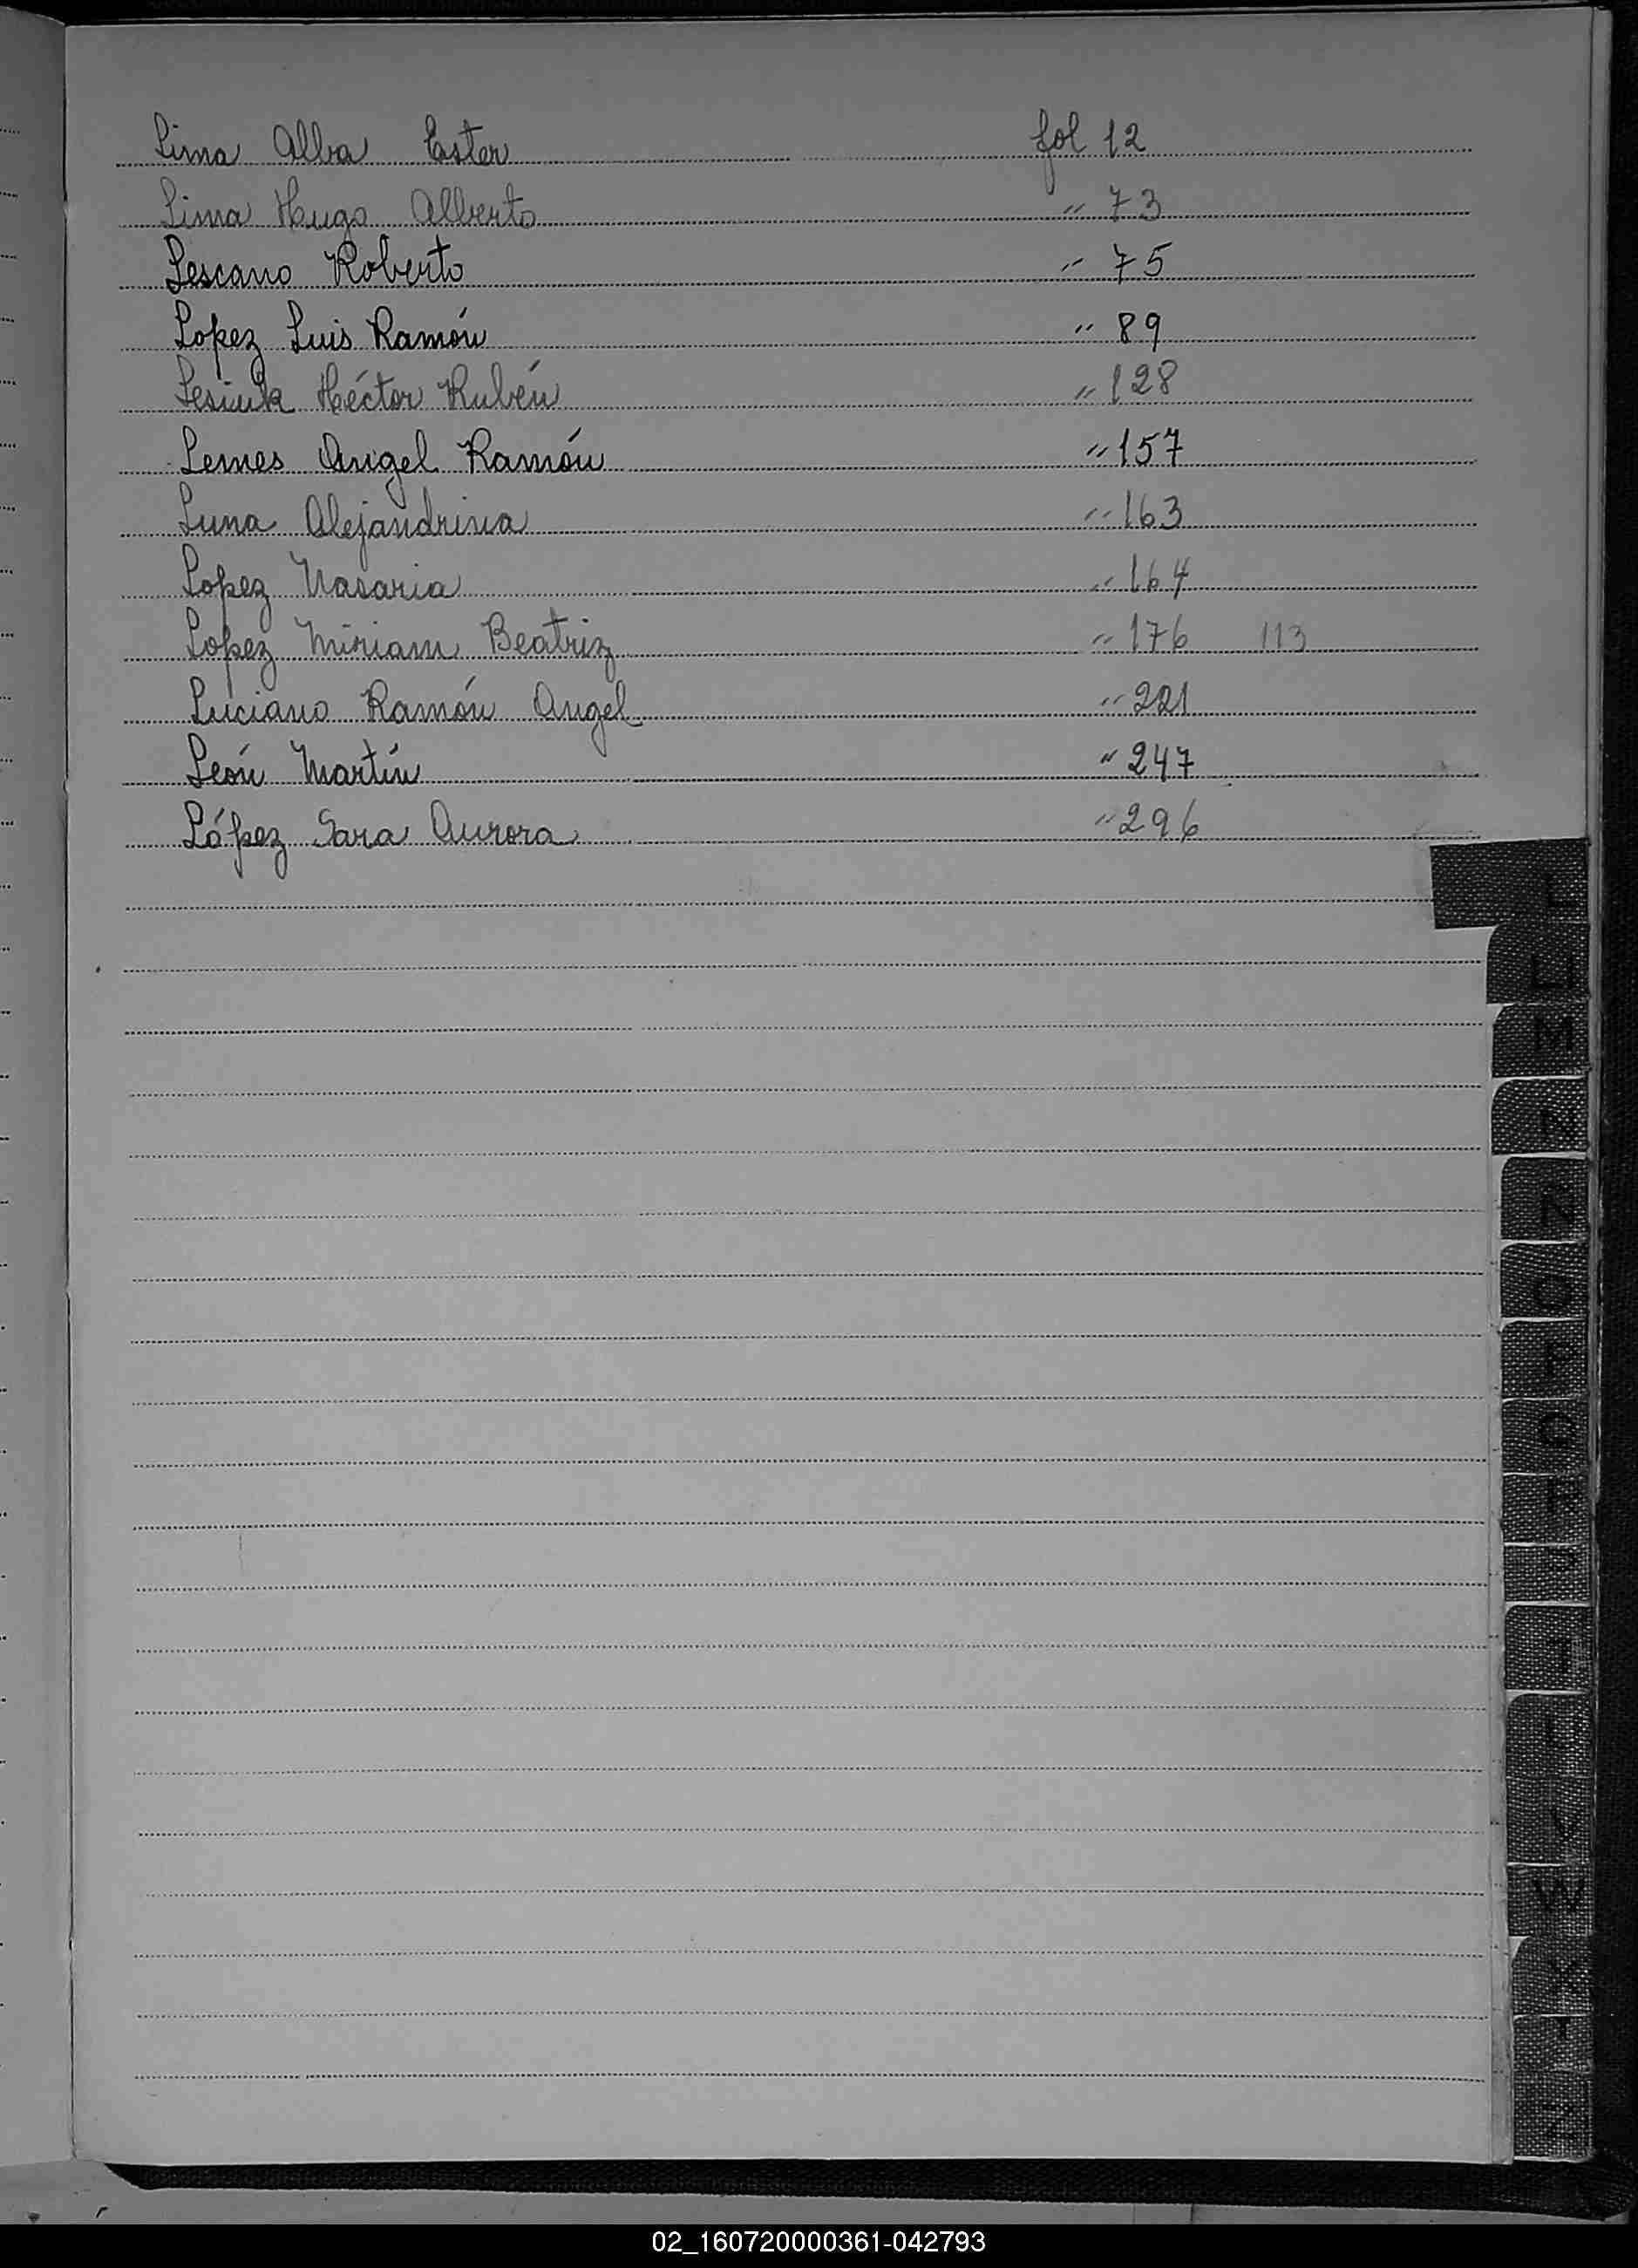 Lima Alba Ester fol 12
Lima Hugo Alberto " 73
Lescano Roberto " 75
Lopez Luis Ramón " 89
Lesiuk Héctor Rubén " 128
Lemes Angel Ramón " 157
Luna Alejandrina " 163
Lopez Nasaria " 164
Lopez Miriam Beatriz " 176 113
Luciano Ramón Angel " 221
León Martín " 247
López Sara Aurora " 296
L
LL
M
N
Ñ
O
P
Q
R
S
T
U
V
W
X
Y
Z
02_160720000361-042793